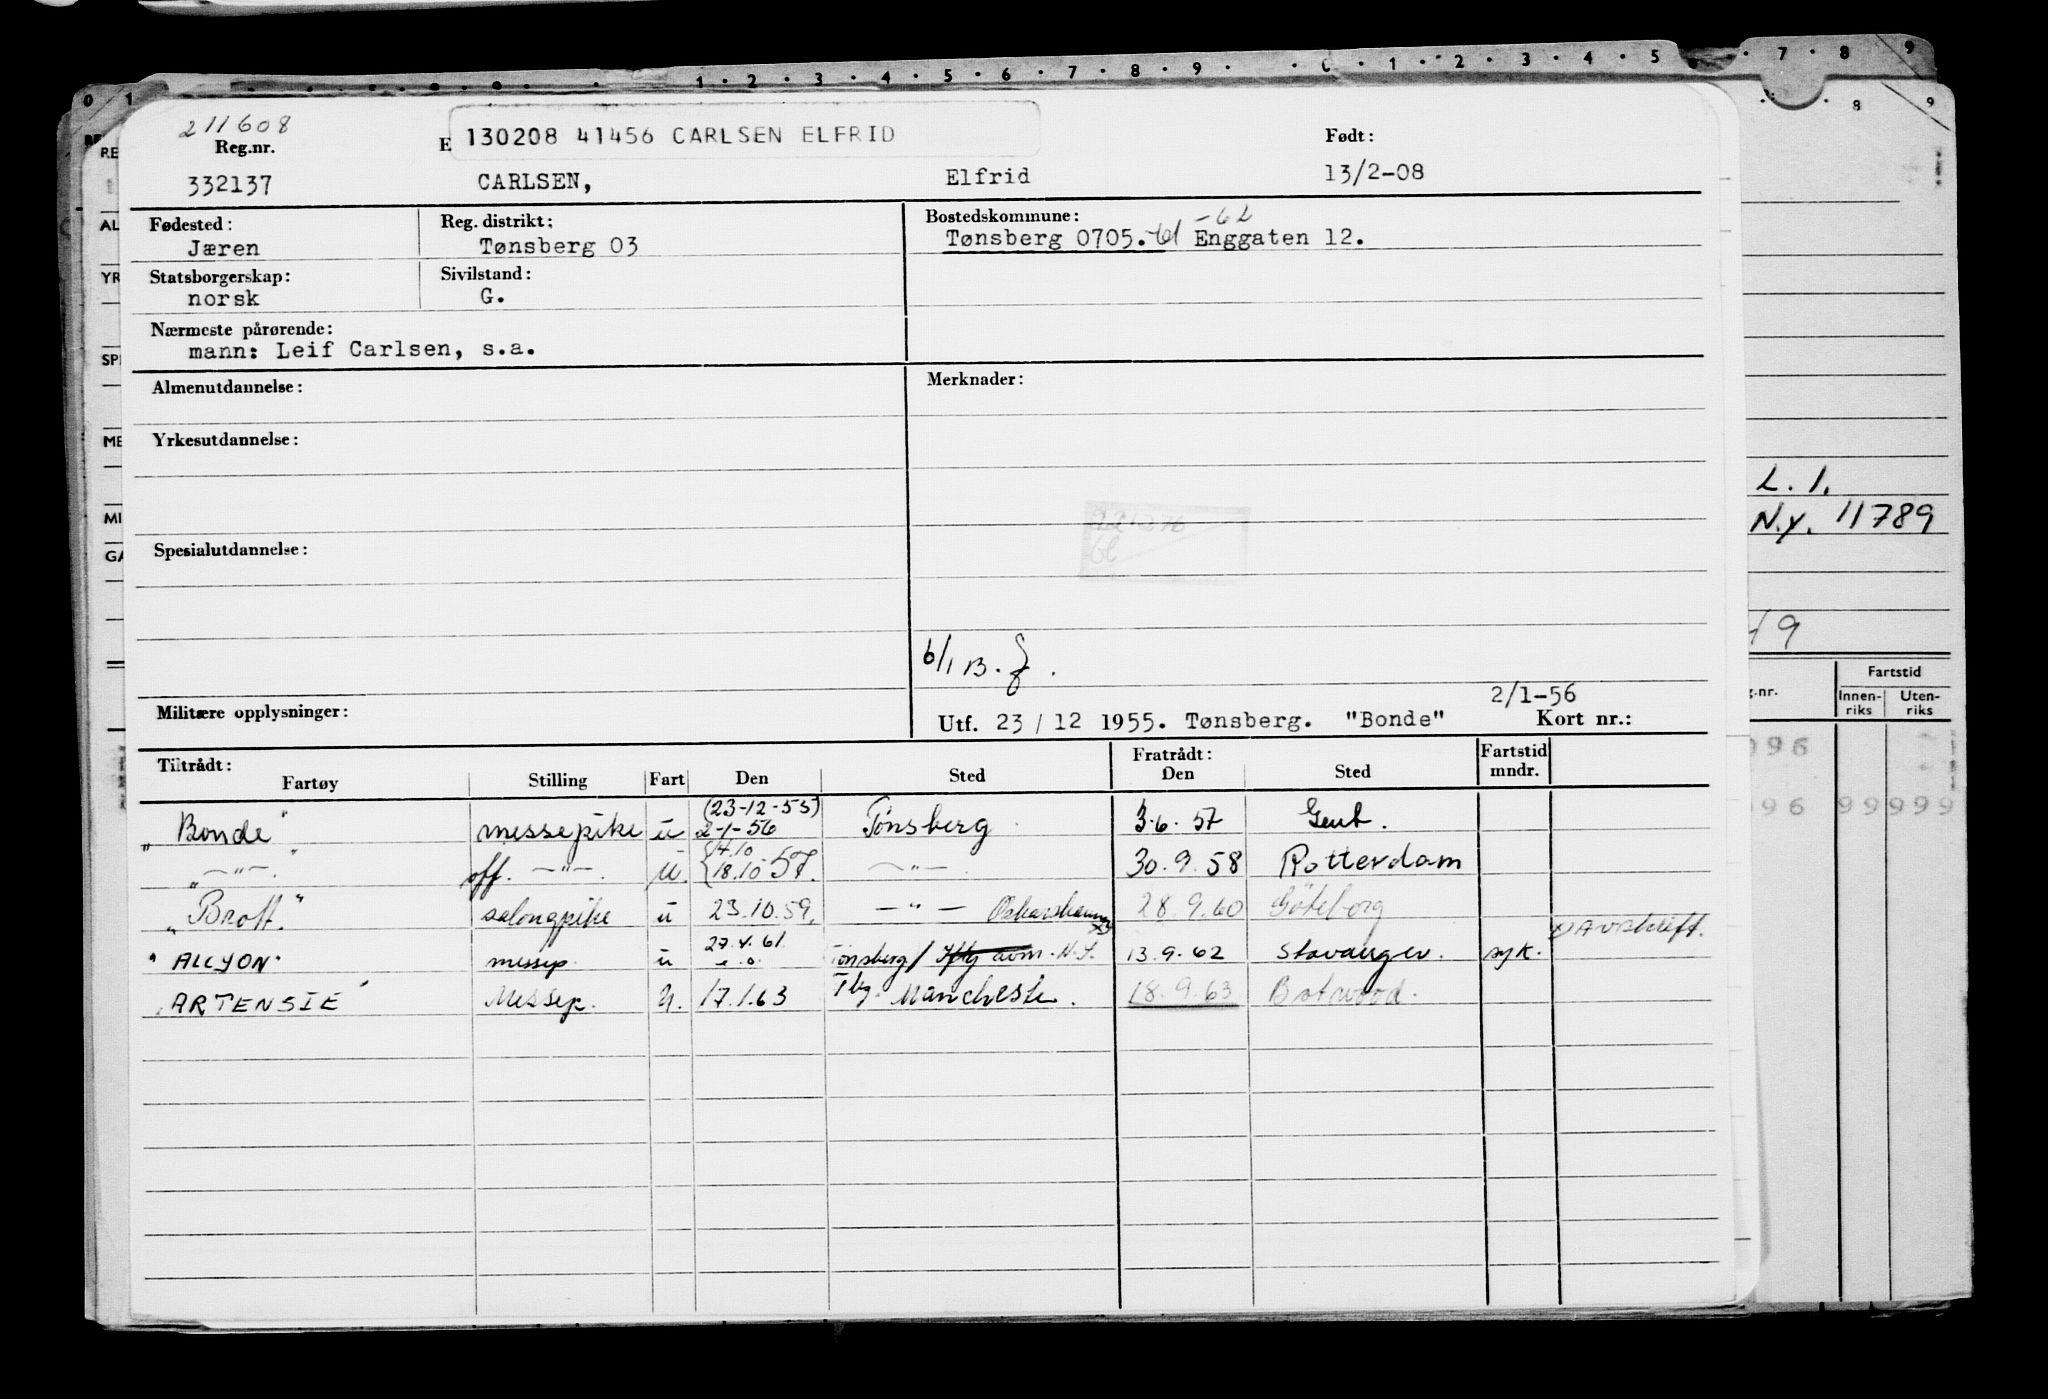 211608
Reg.nr.
E
130208 41456 CARLSEN ELFRID
Født:
332137
CARLSEN,
Elfrid
13/2-08
Fødested:
Jæren
Reg. distrikt:
Tønsberg 03
Bostedskommune:
-62
Tønsberg 0705.-61 Enggaten 12.
Statsborgerskap:
norsk
Sivilstand:
G.
Nærmeste pårørende:
mann: Leif Carlsen, s.a.
Almenutdannelse:
Merknader:
Yrkesutdannelse:
Spesialutdannelse:
6/1 B.
Militære opplysninger:
2/1-56
Utf. 23/12 1955. Tønsberg. "Bonde" Kort nr.:
Tiltrådt:
Fartøy
Stilling
Fart
Den
Sted
Fratrådt:
Den
Sted
Fartstid
mndr.
(23-12-55)
"Bonde" messepike u 2-1-56 Tønsberg 3.6.57 Gent.
"-"-" off. -"-. u. 18.10 57. -"- 30.9.58 Rotterdam
"Brott." salongpike u 23.10.59, -"- Oskarshamn 28.9.60 Göteborg
x) Avskrift.
27.4.61
"ALCYON" messep. u Tønsberg/ 13.9.62 Stavanger. syk.
"ARTENSIE" Messep. u. 17.1.63 Tbg. Manchester. 18.9.63 Botwood.
0 1
1 2 3 4 5 6 7 8 9 0 1 2 3 4 5 7 8 9
8 9
RE
AL
YR
SPE
ME
MI
GA
L. I.
N.y. 11789
49
Fartstid
g.nr.
Innen-
riks
Uten-
riks
096
096 99999